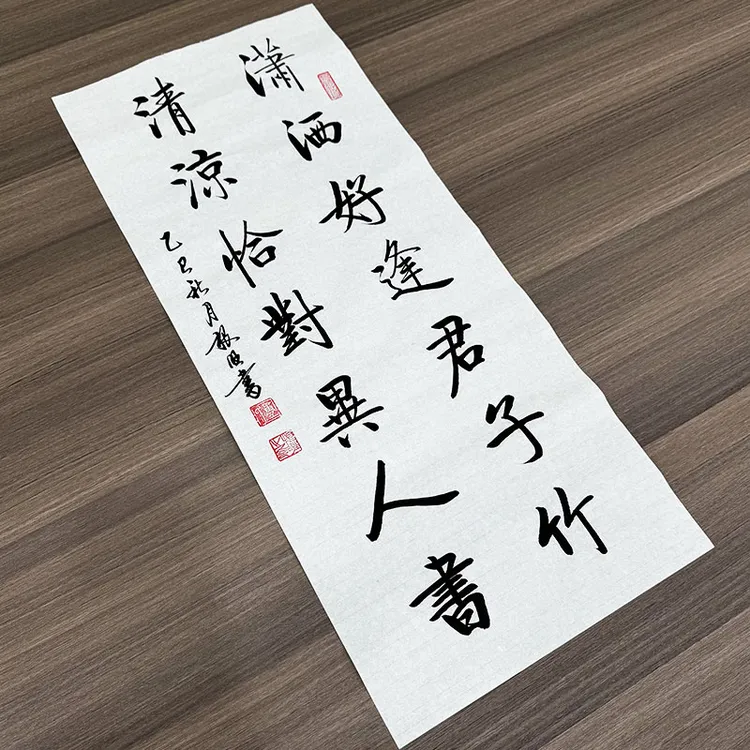 瀟洒好逢君子竹
清涼恰對異人書
乙巳秋月 書